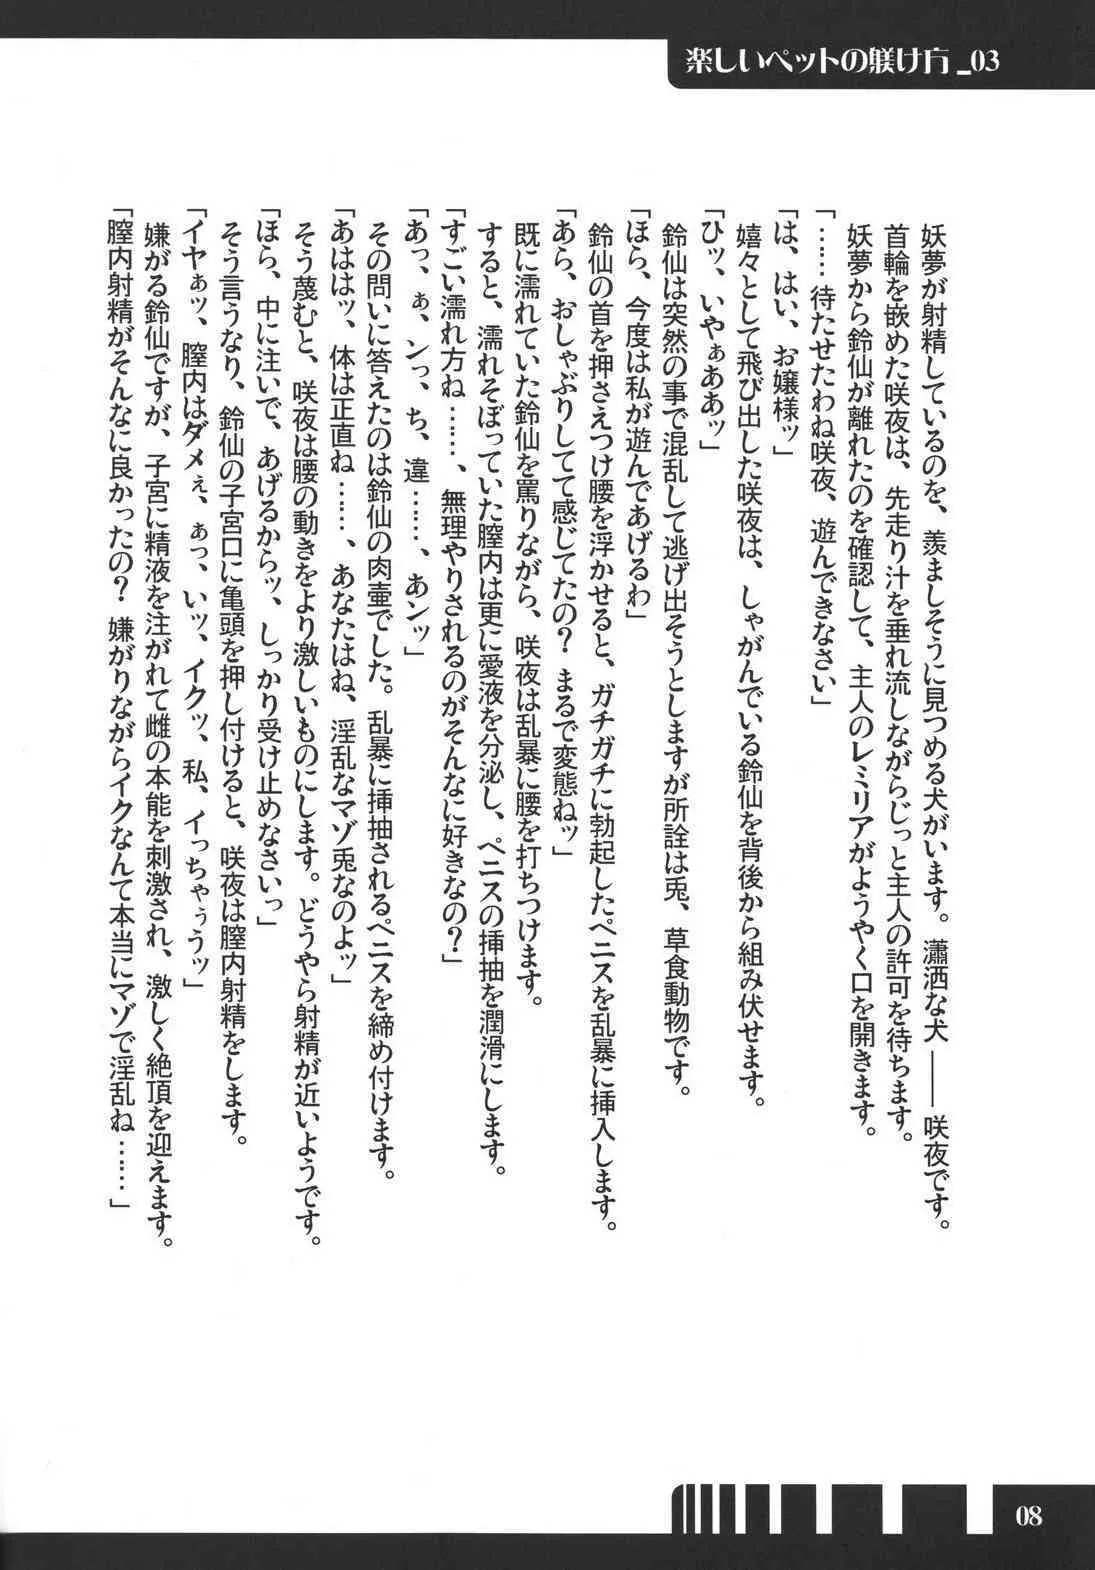 楽しいペットの躾け方_03
妖夢が射精しているのを、羨ましそうに見つめる犬がいます。瀟洒な犬――咲夜です。
首輪を嵌めた咲夜は、先走り汁を垂れ流しながらじっと主人の許可を待ちます。
妖夢から鈴仙が離れたのを確認して、主人のレミリアがようやく口を開きます。
「……待たせたわね咲夜、遊んできなさい」
「は、はい、お嬢様ッ」
嬉々として飛び出した咲夜は、しゃがんでいる鈴仙を背後から組み伏せます。
「ひッ、いやぁああッ」
鈴仙は突然の事で混乱して逃げ出そうとしますが所詮は兎、草食動物です。
「ほら、今度は私が遊んであげるわ」
鈴仙の首を押さえつけ腰を浮かせると、ガチガチに勃起したペニスを乱暴に挿入します。
「あら、おしゃぶりしてて感じてたの? まるで変態ねッ」
既に濡れていた鈴仙を罵りながら、咲夜は乱暴に腰を打ちつけます。
すると、濡れそぼっていた膣内は更に愛液を分泌し、ペニスの挿抽を潤滑にします。
「すごい濡れ方ね……、無理やりされるのがそんなに好きなの?」
「あっ、ぁ、ンっ、ち、違……、あンッ」
その問いに答えたのは鈴仙の肉壷でした。乱暴に挿抽されるペニスを締め付けます。
「あははッ、体は正直ね……、あなたはね、淫乱なマゾ兎なのよッ」
そう蔑むと、咲夜は腰の動きをより激しいものにします。どうやら射精が近いようです。
「ほら、中に注いで、あげるからッ、しっかり受け止めなさいっ」
そう言うなり、鈴仙の子宮口に亀頭を押し付けると、咲夜は膣内射精をします。
「イヤぁッ、膣内はダメぇ、ぁっ、いッ、イクッ、私、イっちゃぅうッ」
嫌がる鈴仙ですが、子宮に精液を注がれて雌の本能を刺激され、激しく絶頂を迎えます。
「膣内射精がそんなに良かったの? 嫌がりながらイクなんて本当にマゾで淫乱ね……」
08